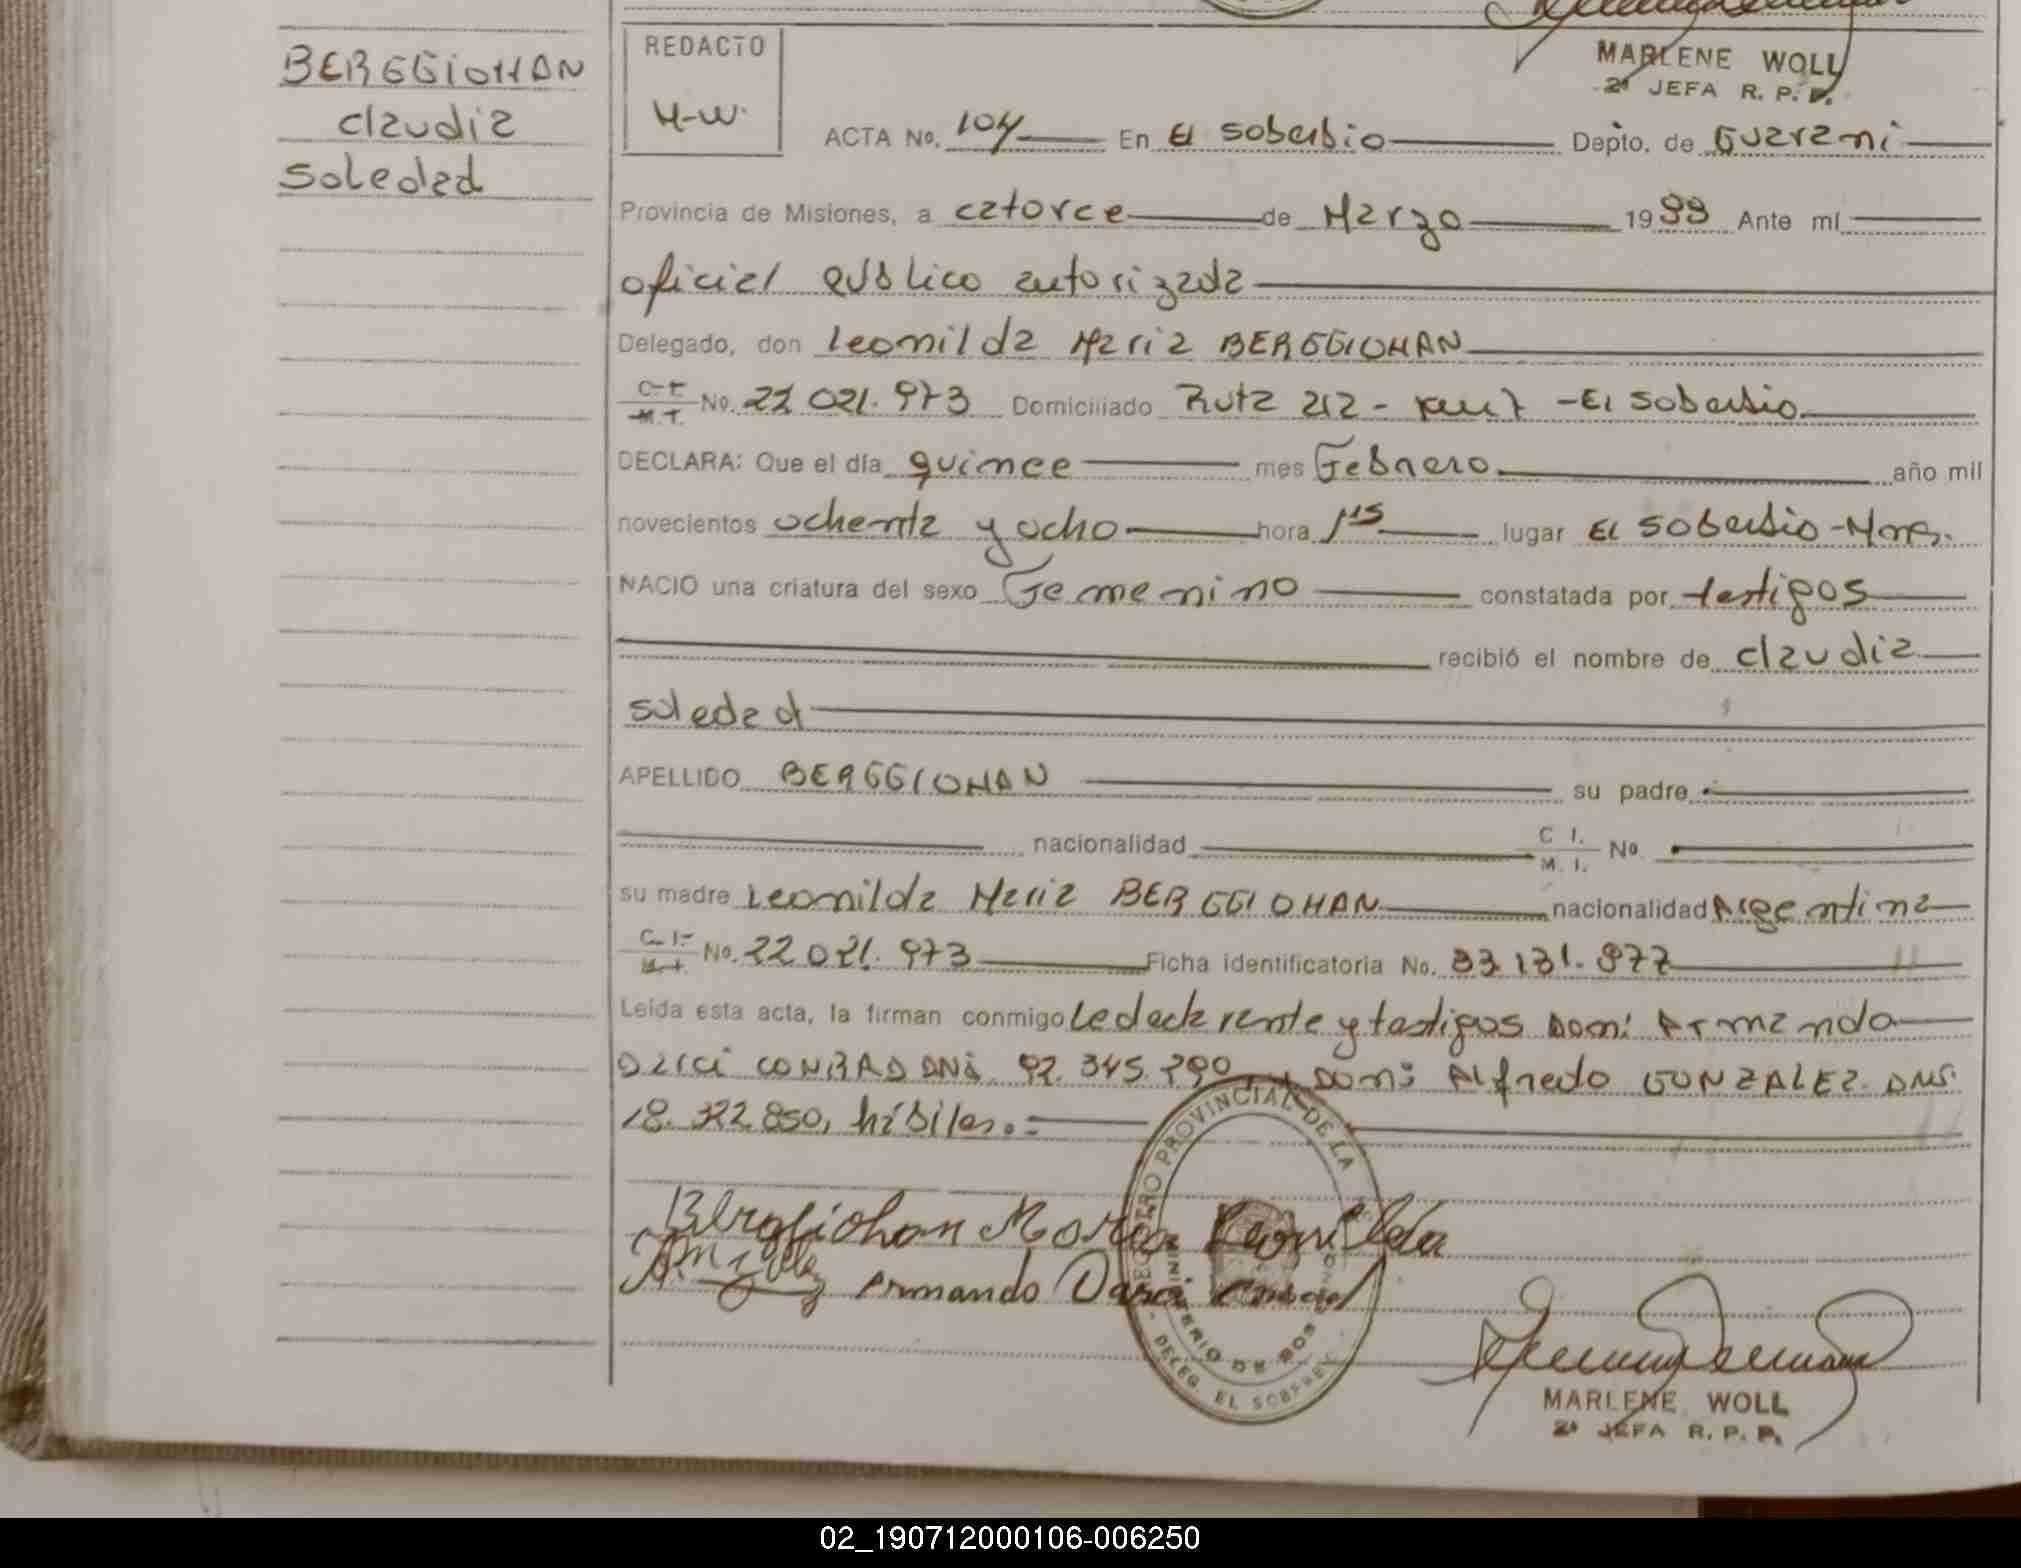 MARLENE WOLL
2ª JEFA R. P. P.
BERGGIOHAN
claudia
soledad
REDACTO
M-W.
ACTA No. 104 En El soberbio Depto. de Guarani
Provincia de Misiones, a catorce de Marzo 1999 Ante mí
oficial público autorizada
Delegado, don Leonilda Maria BERGGIOHAN
C.I. M.I. No. 22 021.973 Domiciliado Ruta 212 - - El soberbio
DECLARA: Que el día quince mes Febrero año mil
novecientos ochenta y ocho hora lugar El soberbio - Mnes.
NACIO una criatura del sexo Femenino constatada por testigos
recibió el nombre de claudia
soledad
APELLIDO BERGGIOHAN su padre
nacionalidad C I. M. I. No
su madre Leonilda Maria BERGGIOHAN nacionalidad Argentina
C.I. M.I. No. 22 021.973 Ficha identificatoria No. 33 131.977
Leída esta acta, la firman conmigo La declarante y testigos Don: Armando
Darci CONRAD DNI. 92.345.790 y Don: Alfredo GONZALEZ. DNI.
18.322.850, hábiles.=
Berggiohan Maria Leonilda
Armando Darci Conrad
REGISTRO PROVINCIAL DE LA
MINISTERIO DE GOB
DELEG. EL SOBERBIO
MARLENE WOLL
2ª JEFA R. P. P.
02_190712000106-006250